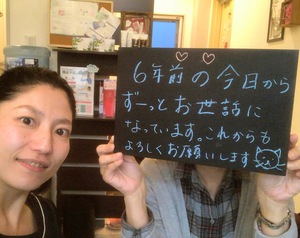 6年前の今日から
ずーっとお世話に
なっています。これからも
よろしくお願いします